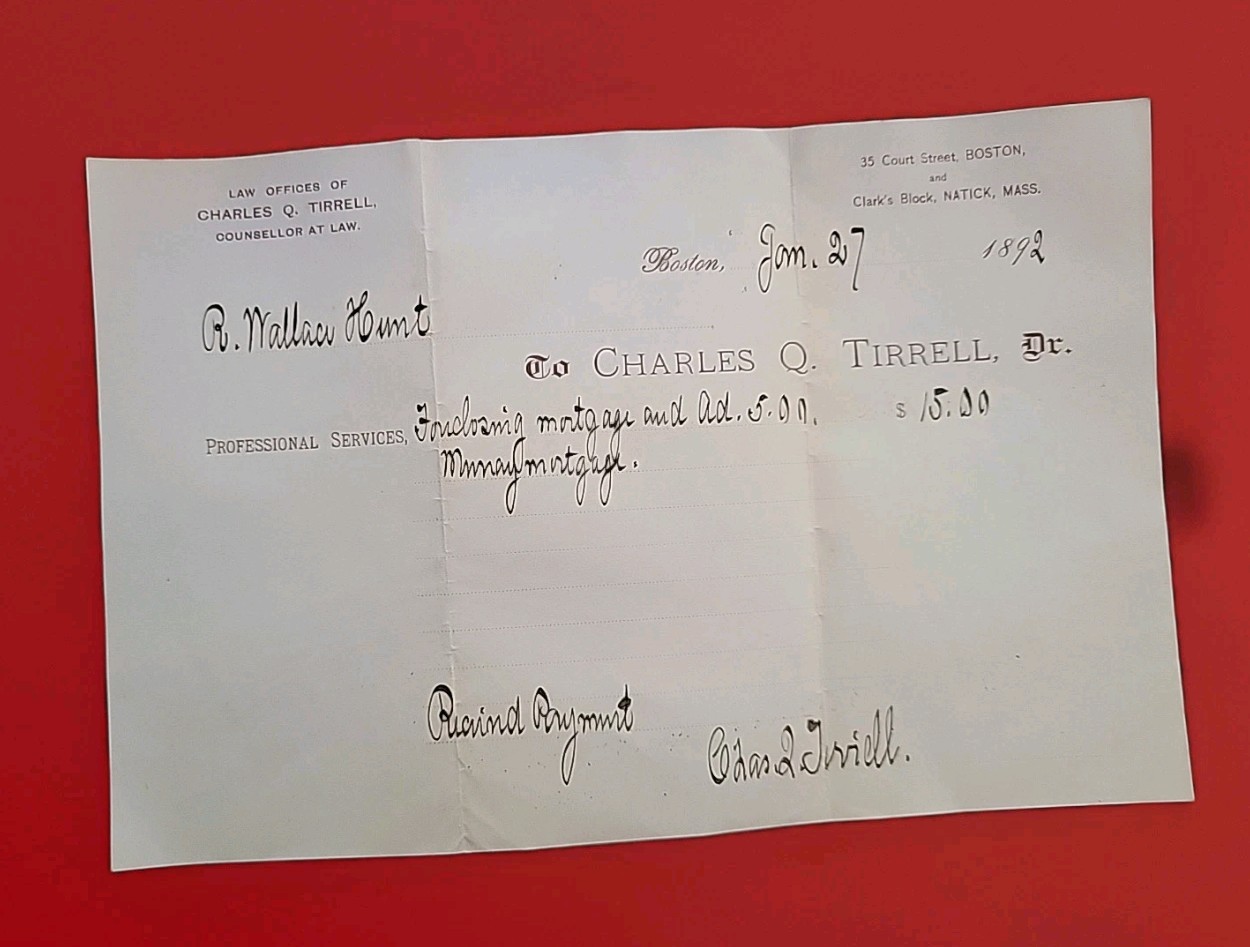 LAW OFFICES OF
CHARLES Q. TIRRELL,
COUNSELLOR AT LAW.
35 Court Street, BOSTON,
and
Clark's Block, NATICK, MASS.
Boston, Jan. 27 1892
R. Wallace Hunt
To CHARLES Q. TIRRELL, Dr.
PROFESSIONAL SERVICES, Foreclosing mortgage and Ad. 5.00. $ 15.00
Murray mortgage.
Received Payment
Chas Q Tirrell.